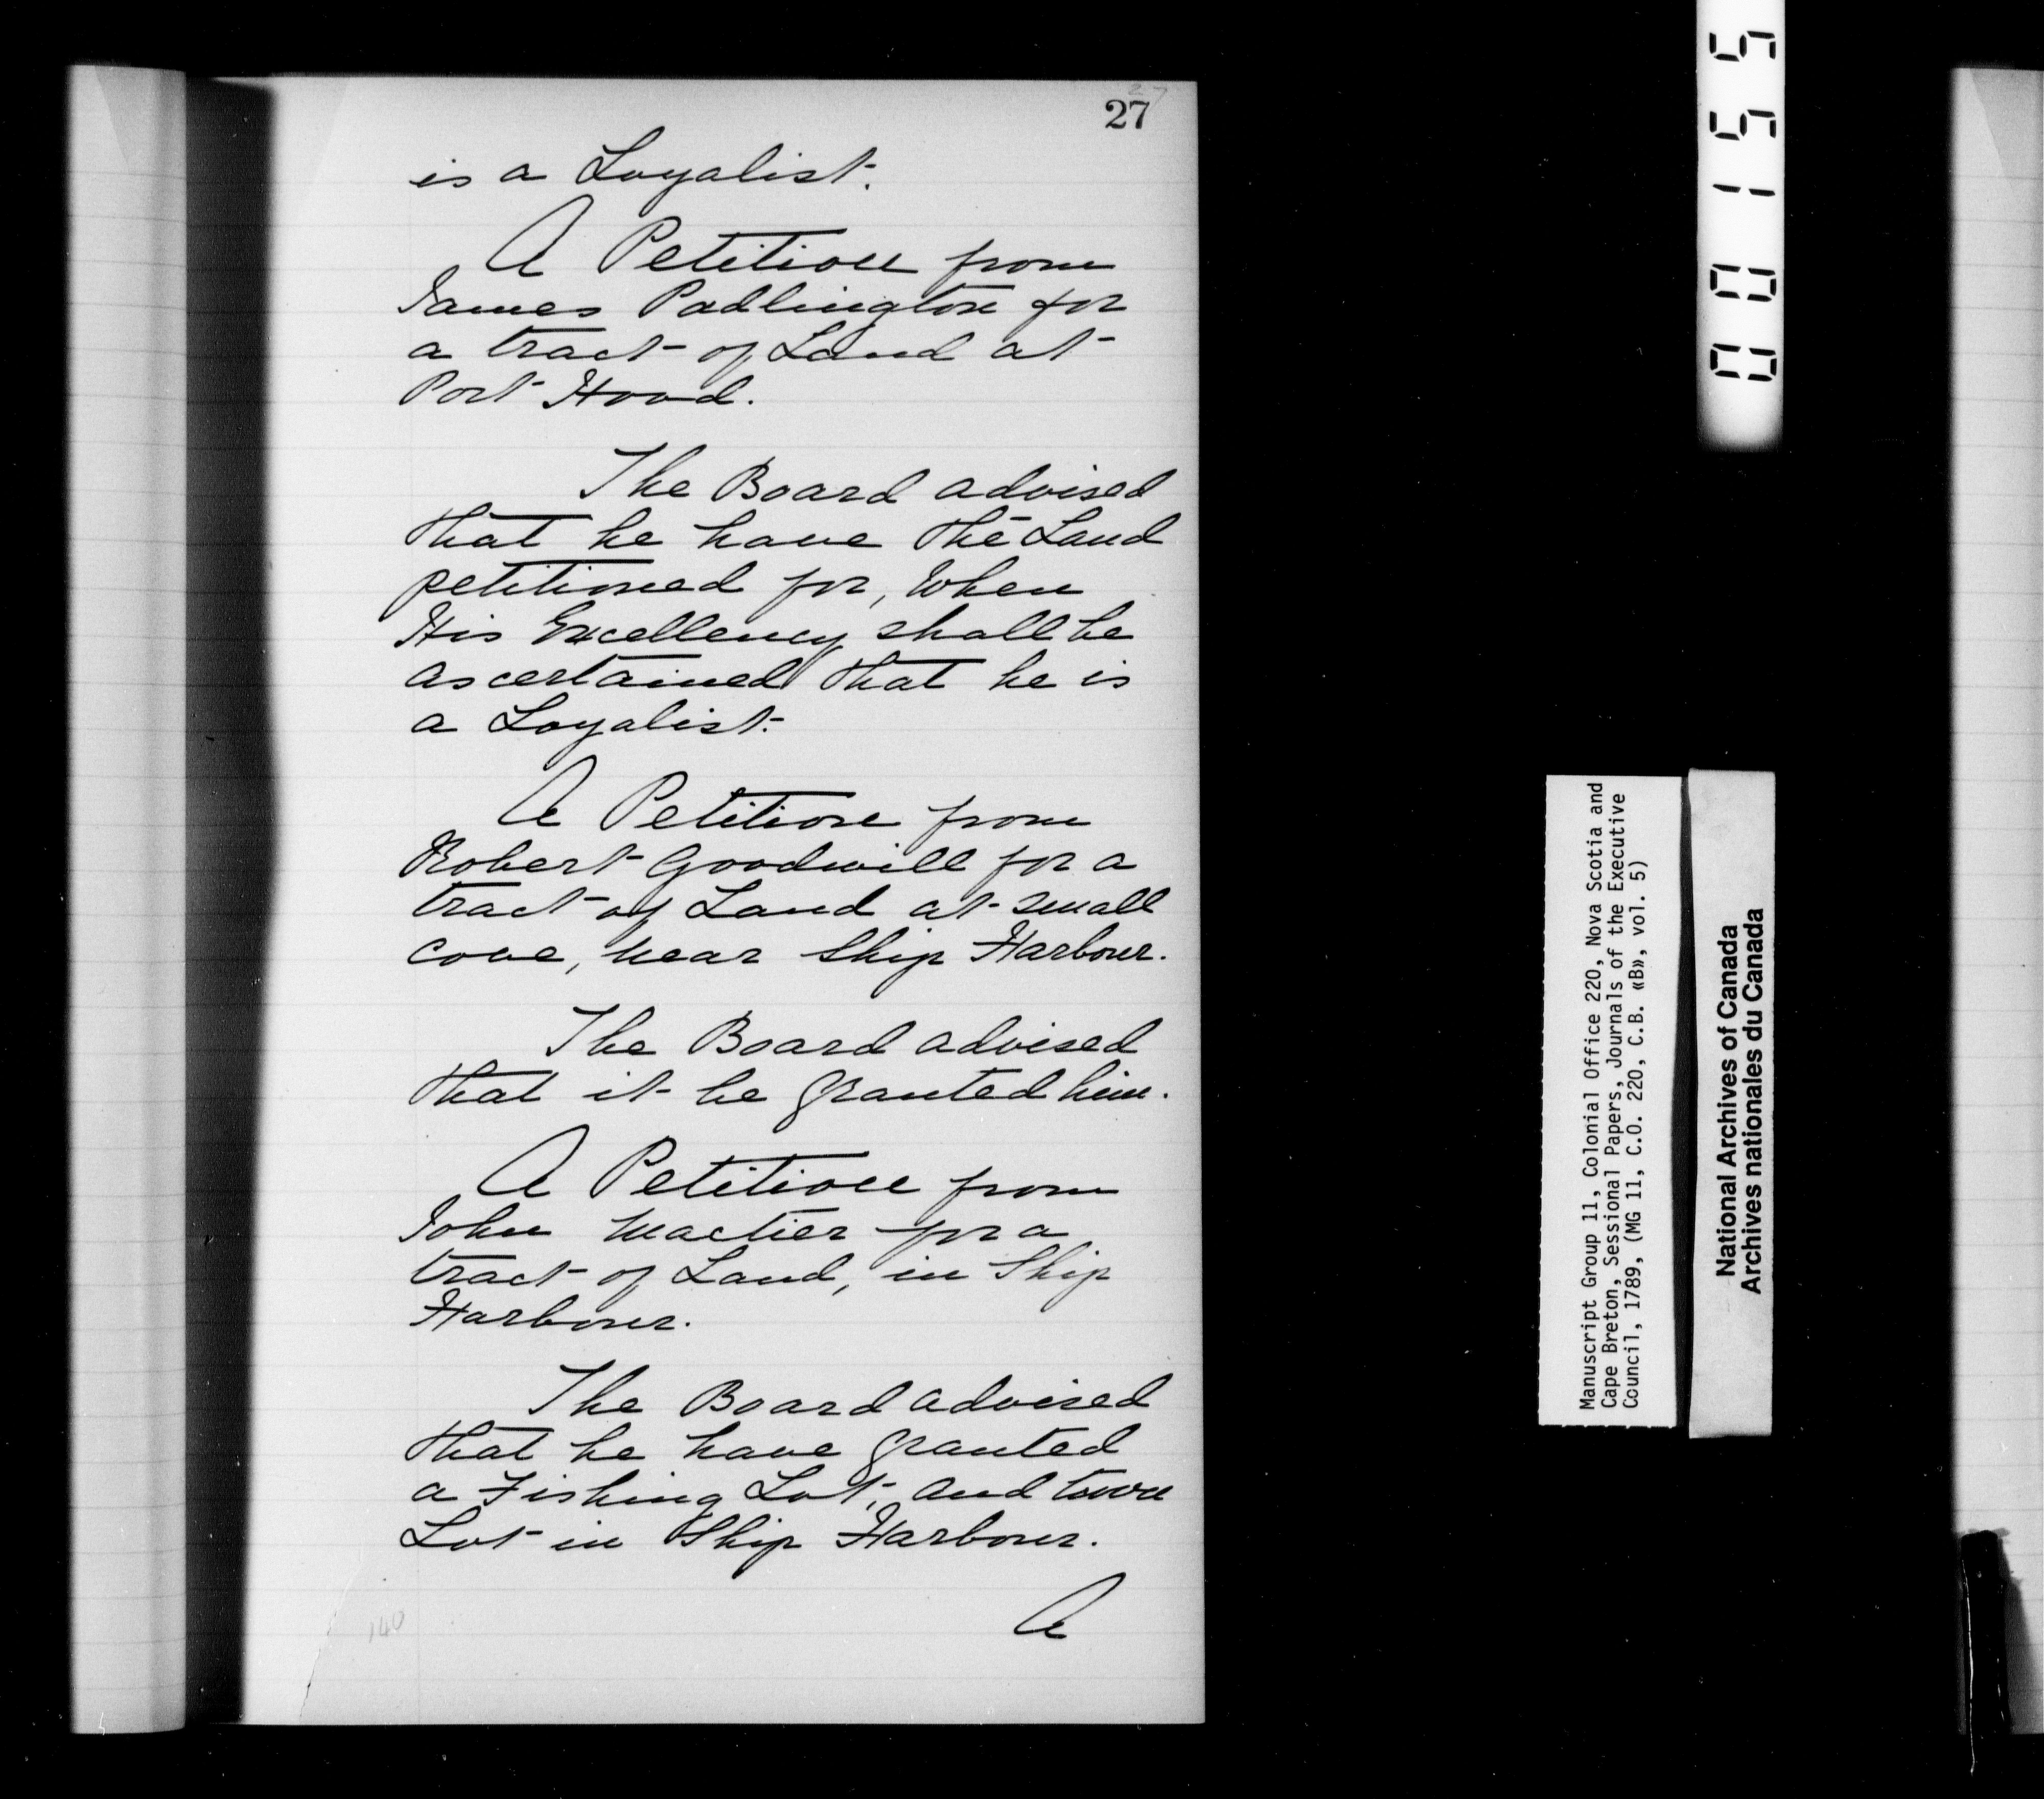 27
27
is a Loyalist.
A Petition from
James Padlington for
a tract of Land at
Port Hood.
The Board advised
that he have the Land
petitioned for, when
His Excellency shall be
ascertained that he is
a Loyalist.
A Petition from
Robert Goodwill for a
tract of Land at small
cove, near Ship Harbour.
The Board advised
that it be granted him.
A Petition from
John Mactier for a
tract of Land, in Ship
Harbour.
The Board advised
that he have granted
a Fishing Lot, and town
Lot in Ship Harbour.
A
140
00155
Manuscript Group 11, Colonial Office 220, Nova Scotia and
Cape Breton, Sessional Papers, Journals of the Executive
Council, 1789, (MG 11, C.O. 220, C.B. «B», vol. 5)
National Archives of Canada
Archives nationales du Canada